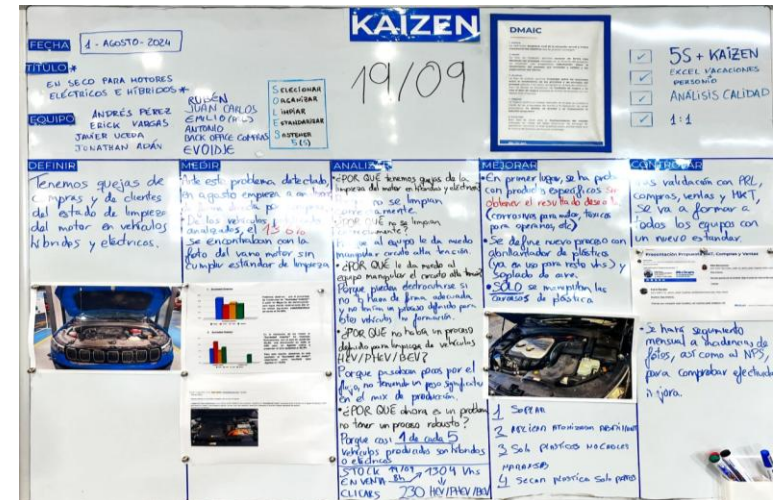 KAIZEN
FECHA
1 - AGOSTO - 2024
TÍTULO *
EN SECO PARA MOTORES
ELÉCTRICOS E HÍBRIDOS *
EQUIPO
ANDRÉS PÉREZ
ERICK VARGAS
JAVIER UCEDA
JONATHAN ADÁN
RUBÉN
JUAN CARLOS
EMILIO
ANTONIO
BACK OFFICE COMPRAS
SELECCIONAR
ORGANIZAR
LIMPIAR
ESTANDARIZAR
SOSTENER
5(S)
19/09
DMAIC
5S + KAIZEN
EXCEL VACACIONES
PERSONIO
ANÁLISIS CALIDAD
1:1
DEFINIR
Tenemos quejas de
compras y de clientes
del estado de limpieza
del motor en vehículos
híbridos y eléctricos.
MEDIR
este problema detectado,
en agosto empieza a
De los vehículos
analizados, el
se encontraban con la
foto del vano motor sin
cumplir estándar de limpieza
ANALIZAR
• ¿POR QUÉ tenemos quejas de la
limpieza del motor en híbridos y eléctricos
no se limpian
correctamente.
¿POR QUÉ no se limpian
correctamente?
al equipo le da miedo
manipular circuito alta tensión.
• ¿POR QUÉ le da miedo al
equipo manipular el circuito alta
Porque pueden electrocutarse si
no lo hacen de forma adecuada,
y no tenían un proceso definido para
estos vehículos ni formación.
• ¿POR QUÉ no había un proceso
definido para limpieza de vehículos
HEV/PHEV/BEV?
Porque pasaban pocos por el
flujo, no teniendo un peso significativo
en el mix de producción.
• ¿POR QUÉ ahora es un problema
no tener un proceso robusto?
Porque casi 1 de cada 5
vehículos producidos son híbridos
o eléctricos
STOCK 19/09 1304 Vhs
EN VENTA 8h
CLICARS 230 HEV/PHEV/BEV
MEJORAR
• En primer lugar, se ha
con productos específicos sin
obtener el resultado deseado
(corrosivos para motor, tóxicos
para operarios, etc)
• Se define nuevo proceso con
abrillantador de plásticos
(ya en uso para resto vhs) y
soplado de aire.
• SOLO se manipulan las
carcasas de plástico
1 SOPLAR
2
3 Solo plásticos no cables
NARANJAS
4 Secan plástico solo
CONTROLAR
validación con PRL,
compras, ventas y MKT,
se va a formar a
todos los equipos con
un nuevo estándar.
• Se hará seguimiento
mensual a incidencias de
fotos, así como al NPS,
para comprobar
mejora.